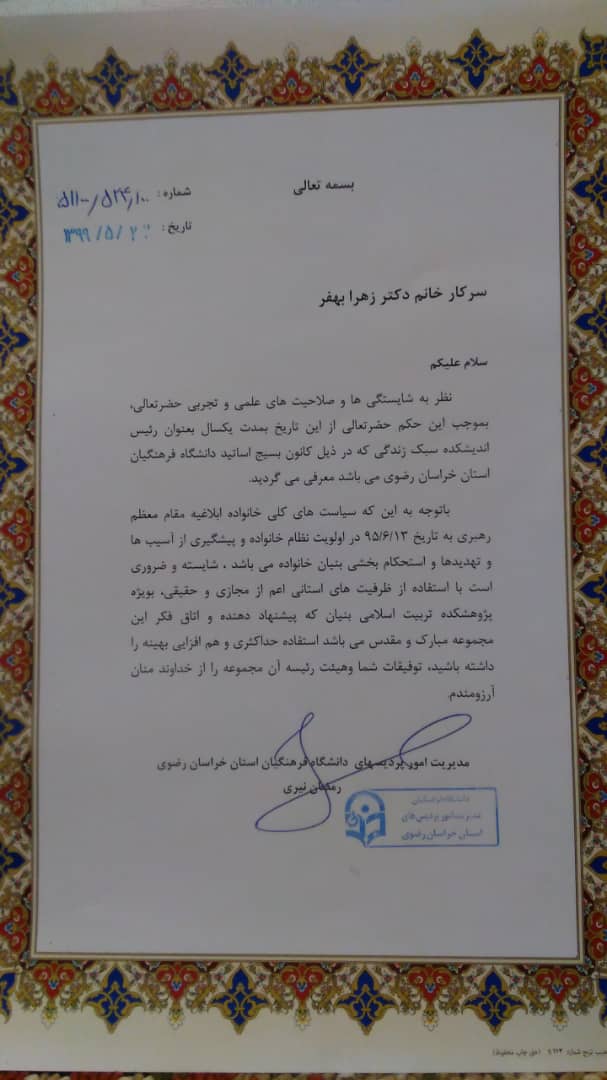 بسمه تعالی
شماره: ۵۱۱۰۰/۵۲۴/۱۰۰
تاریخ: ۱۳۹۹/۵/۲
سرکار خانم دکتر زهرا بهفر
سلام علیکم
نظر به شایستگی ها و صلاحیت های علمی و تجربی حضرتعالی،
بموجب این حکم حضرتعالی از این تاریخ بمدت یکسال بعنوان رئیس
اندیشکده سبک زندگی که در ذیل کانون بسیج اساتید دانشگاه فرهنگیان
استان خراسان رضوی می باشد معرفی می گردید.
باتوجه به این که سیاست های کلی خانواده ابلاغیه مقام معظم
رهبری به تاریخ ۹۵/۶/۱۳ در اولویت نظام خانواده و پیشگیری از آسیب ها
و تهدیدها و استحکام بخشی بنیان خانواده می باشد ، شایسته و ضروری
است با استفاده از ظرفیت های استانی اعم از مجازی و حقیقی، بویژه
پژوهشکده تربیت اسلامی بنیان که پیشنهاد دهنده و اتاق فکر این
مجموعه مبارک و مقدس می باشد استفاده حداکثری و هم افزایی بهینه را
داشته باشید، توفیقات شما وهیئت رئیسه آن مجموعه را از خداوند منان
آرزومندم.
مدیریت امور پردیسهای دانشگاه فرهنگیان استان خراسان رضوی
رمضان نیری
دانشگاه فرهنگیان
مدیریت امور پردیس های
استان خراسان رضوی
(حق چاپ محفوظ)